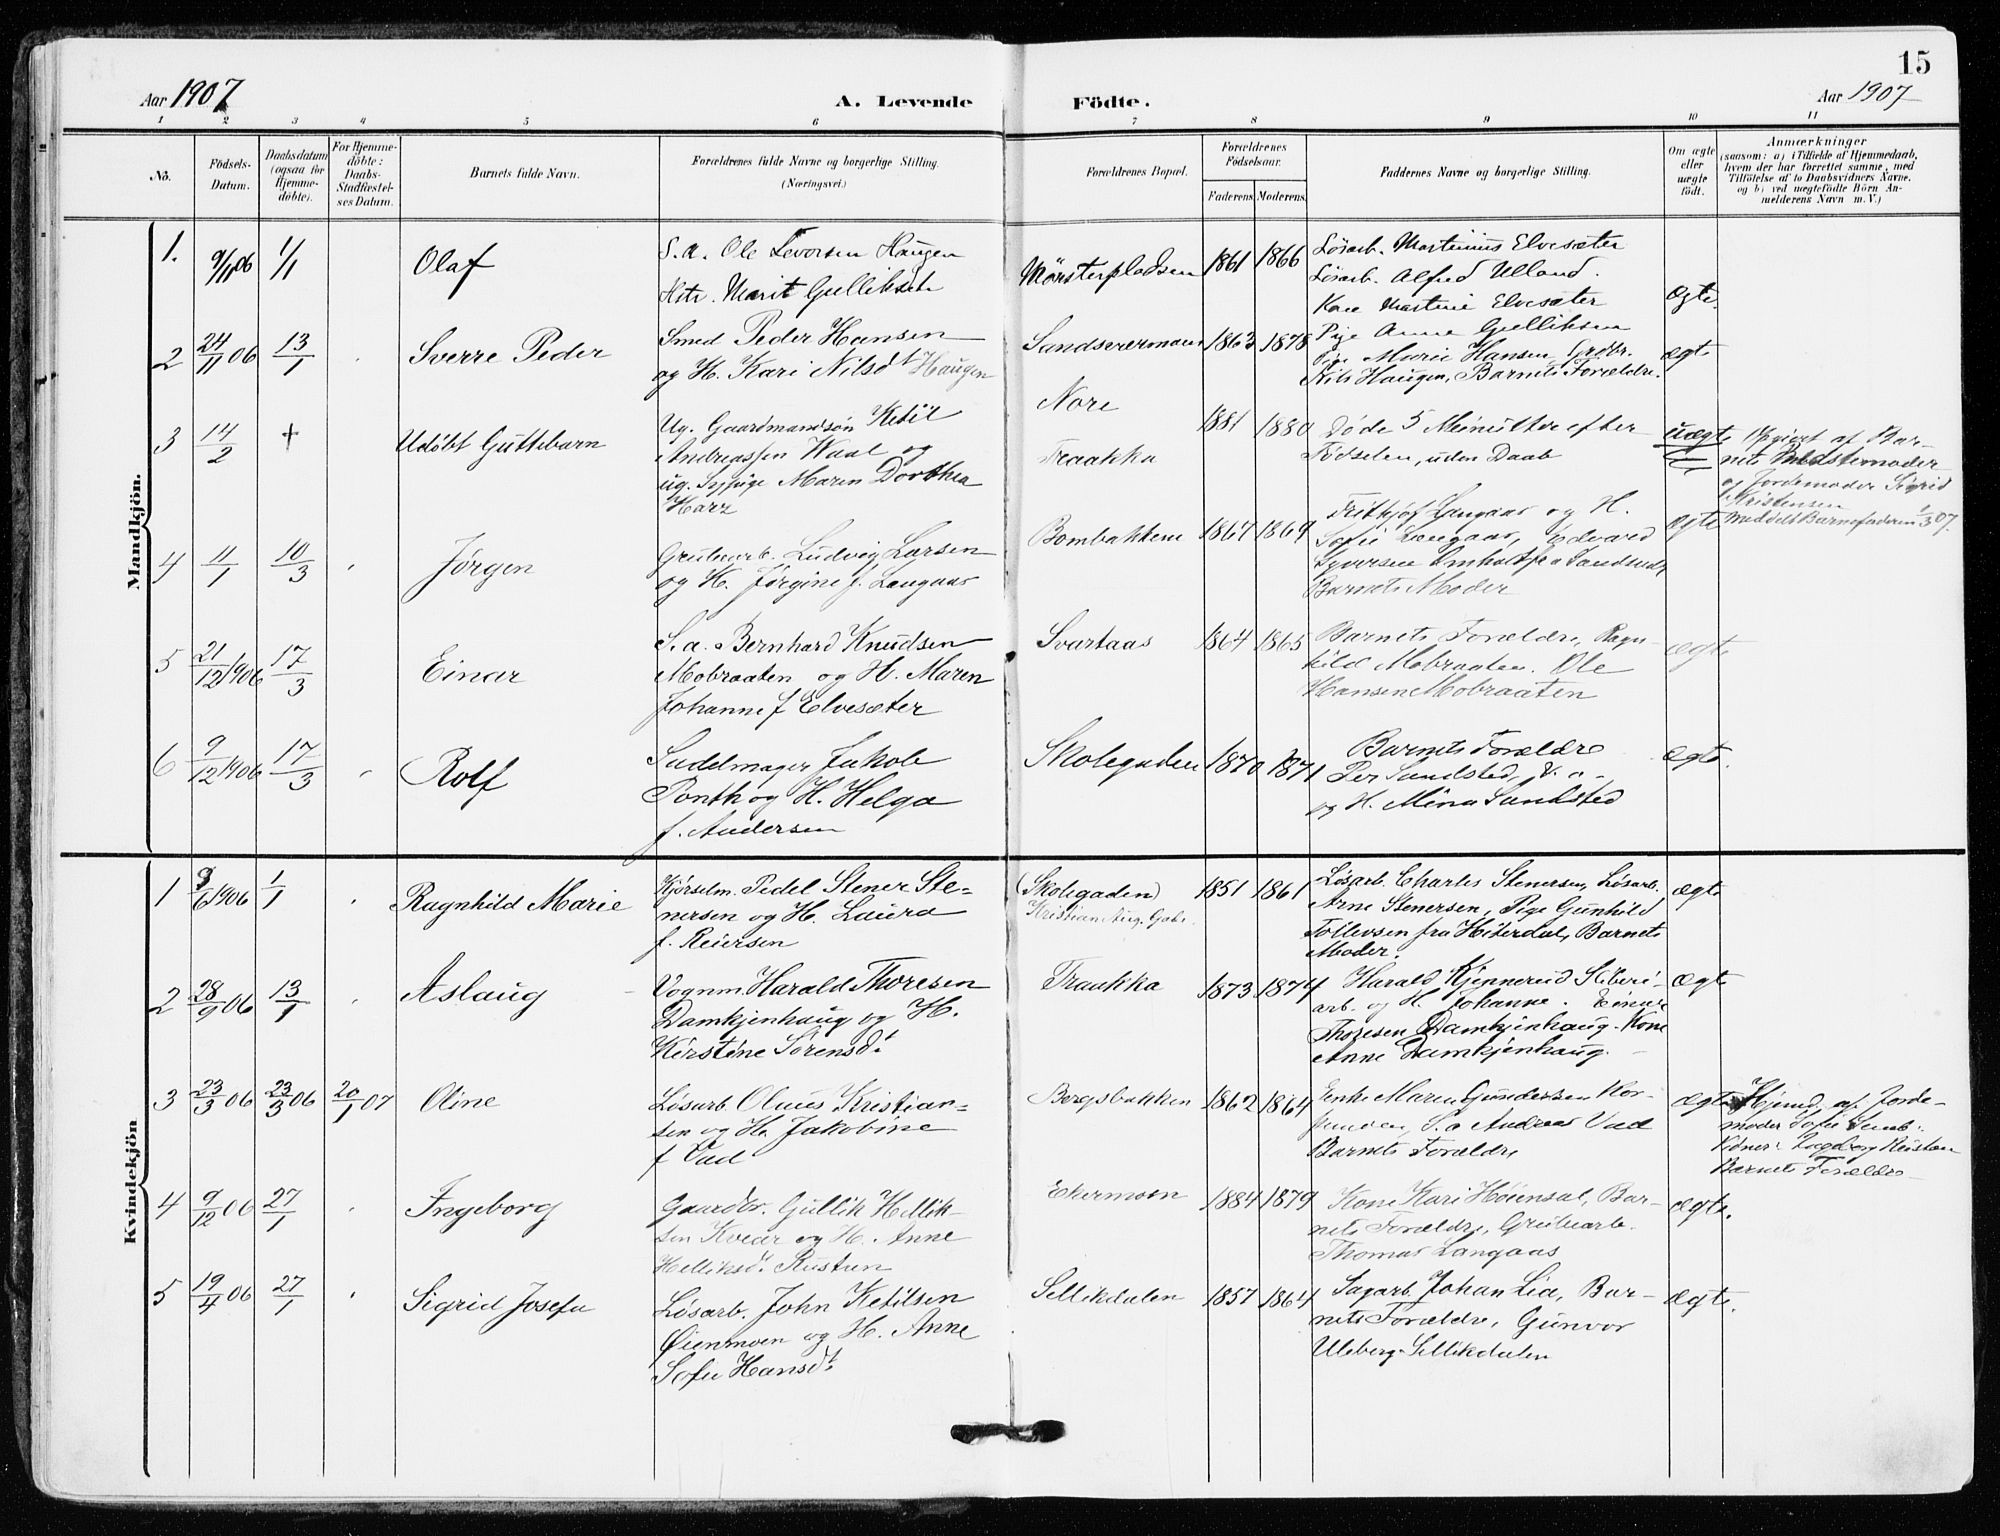 15
Aar 1907
A. Levende Födte.
Aar 1907
1 2 3 4 5 6 7 8 9 10 11
No.
Födsels-Datum.
Daabsdatum (ogsaa for Hjemme-döbte).
For Hjemme-döbte: Daabs-Stadfæstel-ses Datum.
Barnets fulde Navn.
Forældrenes fulde Navne og borgerlige Stilling. (Næringsvei.)
Forældrenes Bopæl.
Forældrenes Födselsaar.
Faderens. Moderens.
Faddernes Navne og borgerlige Stilling.
Om ægte eller uægte födt.
Anmærkninger
(saasom: a) i Tilfælde af Hjemmedaab, hvem der har forrettet samme, med Tilföielse af to Daabsvidners Navne, og b) ved uægtefödte Börn An-melderens Navn m. V.)
Mandkjön.
1. 9/11 06 1/1 Olaf
S. a. Ole Levorsen Haugen
Marit Gulliksdt
Mønsterpladsen 1861 1866
Løsarb. Martinius Elvesæter
Løsarb. Alfred Ulland.
Kone Martine Elvesæter
Pige Anne Gulliksen
Ægte.
2 24/11 06 13/1 Sverre Peder
Smed Peder Hansen
og H. Kari Nilsdt Haugen
1863 1878
Pige Marie Hansen, Grdbr.
Nils Haugen, Barnets Forældre.
ægte
3 14/2 + Udøbt Guttebarn
Ug. Gaardmandsøn Ketil
Andreassen Waal og
ug. Sypige Maren Dorthea
Harz
Nore
Traakka
1881 1880
Døde 5 Minutter efter
Fødselen, uden Daab
uægte
Opgivet af Bar-
nets Bedstemoder
og Jordemoder Sigrid
Kristensen
meddelt Barnefaderen 1/3 07.
4 4/1 10/3 Jørgen
Grubearb. Ludvig Larsen
og H. Jørgine f. Langaas
Bombakkene 1867 1869
Frithjof Langaas og H.
Sofie Langaas, Edvard
Syversen
Barnets Moder
ægte
5 21/12 1906 17/3 Einar
S. a. Bernhard Knudsen
Mobraaten og H. Maren
Johanne f Elvesæter
Svartaas 1864 1865
Barnets Forældre, Ragn-
hild Mobraaten. Ole
Hansen Mobraaten
ægte
6 9/12 1906 17/3 Rolf
Sadelmager Jakob
Ponth og H. Helga
f. Andersen
Skolegaden 1870 1871
Barnets Forældre
Per Sandsted,
og H. Mina Sandsted
ægte.
Kvindekjön
1 1906 1/1 Ragnhild Marie
Kjørselm. Pedel Stener Ste-
nersen og H. Laura
f. Reiersen
(Skolegaden)
Kristian Aug. Gade.
1851 1861
Løsarb. Charles Stenersen, Løsarb.
Arne Stenersen, Pige Gunhild
Tollevsen fra Hiterdal, Barnets
Moder.
ægte
2 28/9 06 13/1 Aslaug
Vognm. Harald Thoresen
Damkjenhaug og H.
Kirstine Sørensdt
Traakka 1873 1874
Harald Kjennerud Sliberi-
arb. og H. Johanne. Einar
Thoresen Damkjenhaug. Kone
Anne Damkjenhaug.
ægte
3 23/3 06 23/3 06 20/1 07 Oline
Løsarb. Olaus Kristian-
sen og H. Jakobine
f Vad
Bergsbakken 1862 1864
Enke Maren Gundersen
S. a Andreas Vad
Barnets Forældre
ægte
Hjemd. af Jorde-
moder Sofie
Barnets Forældre
4 9/12 06 27/1 Ingeborg
Gaardbr. Gullik Hellik-
sen og H. Anne
Helliksdt. Rustun
Ekermoen 1884 1879
Kone Kari Høiensal, Bar-
nets Forældre, Grubearb.
Thomas Langaas
ægte.
5 19/4 06 27/1 Sigrid Josefa
Løsarb. John Ketilsen
Øienmoen og H. Anne
Sofie Hansdt
Sellikdalen 1857 1864
Sagarb. Johan Lia, Bar-
nets Forældre, Gunvor
Uleberg Sellikdalen
ægte.